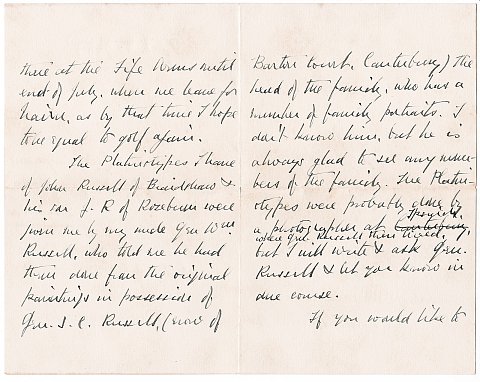 there at the Fife Arms until
end of July, when we leave for
Nairn, as by that time I hope
to be equal to golf again.
The Platinotypes I have
of John Russell of Braidshaw &
his son J. R of Roseburn were
given me by my uncle Gen Wm
Russell, who told me he had
them done from the original
paintings in possession of
Gen. F. C. Russell, (now of
Barton Court, Canterbury) the
head of the family, who has a
number of family portraits. I
don't know him, but he is
always glad to see any mem-
bers of the family. The Platin-
otypes were probably done by
a photographer at Canterbury,
where Gen. Russell then lived,
but I will write & ask Gen.
Russell & let you know in
due course.
If you would like to